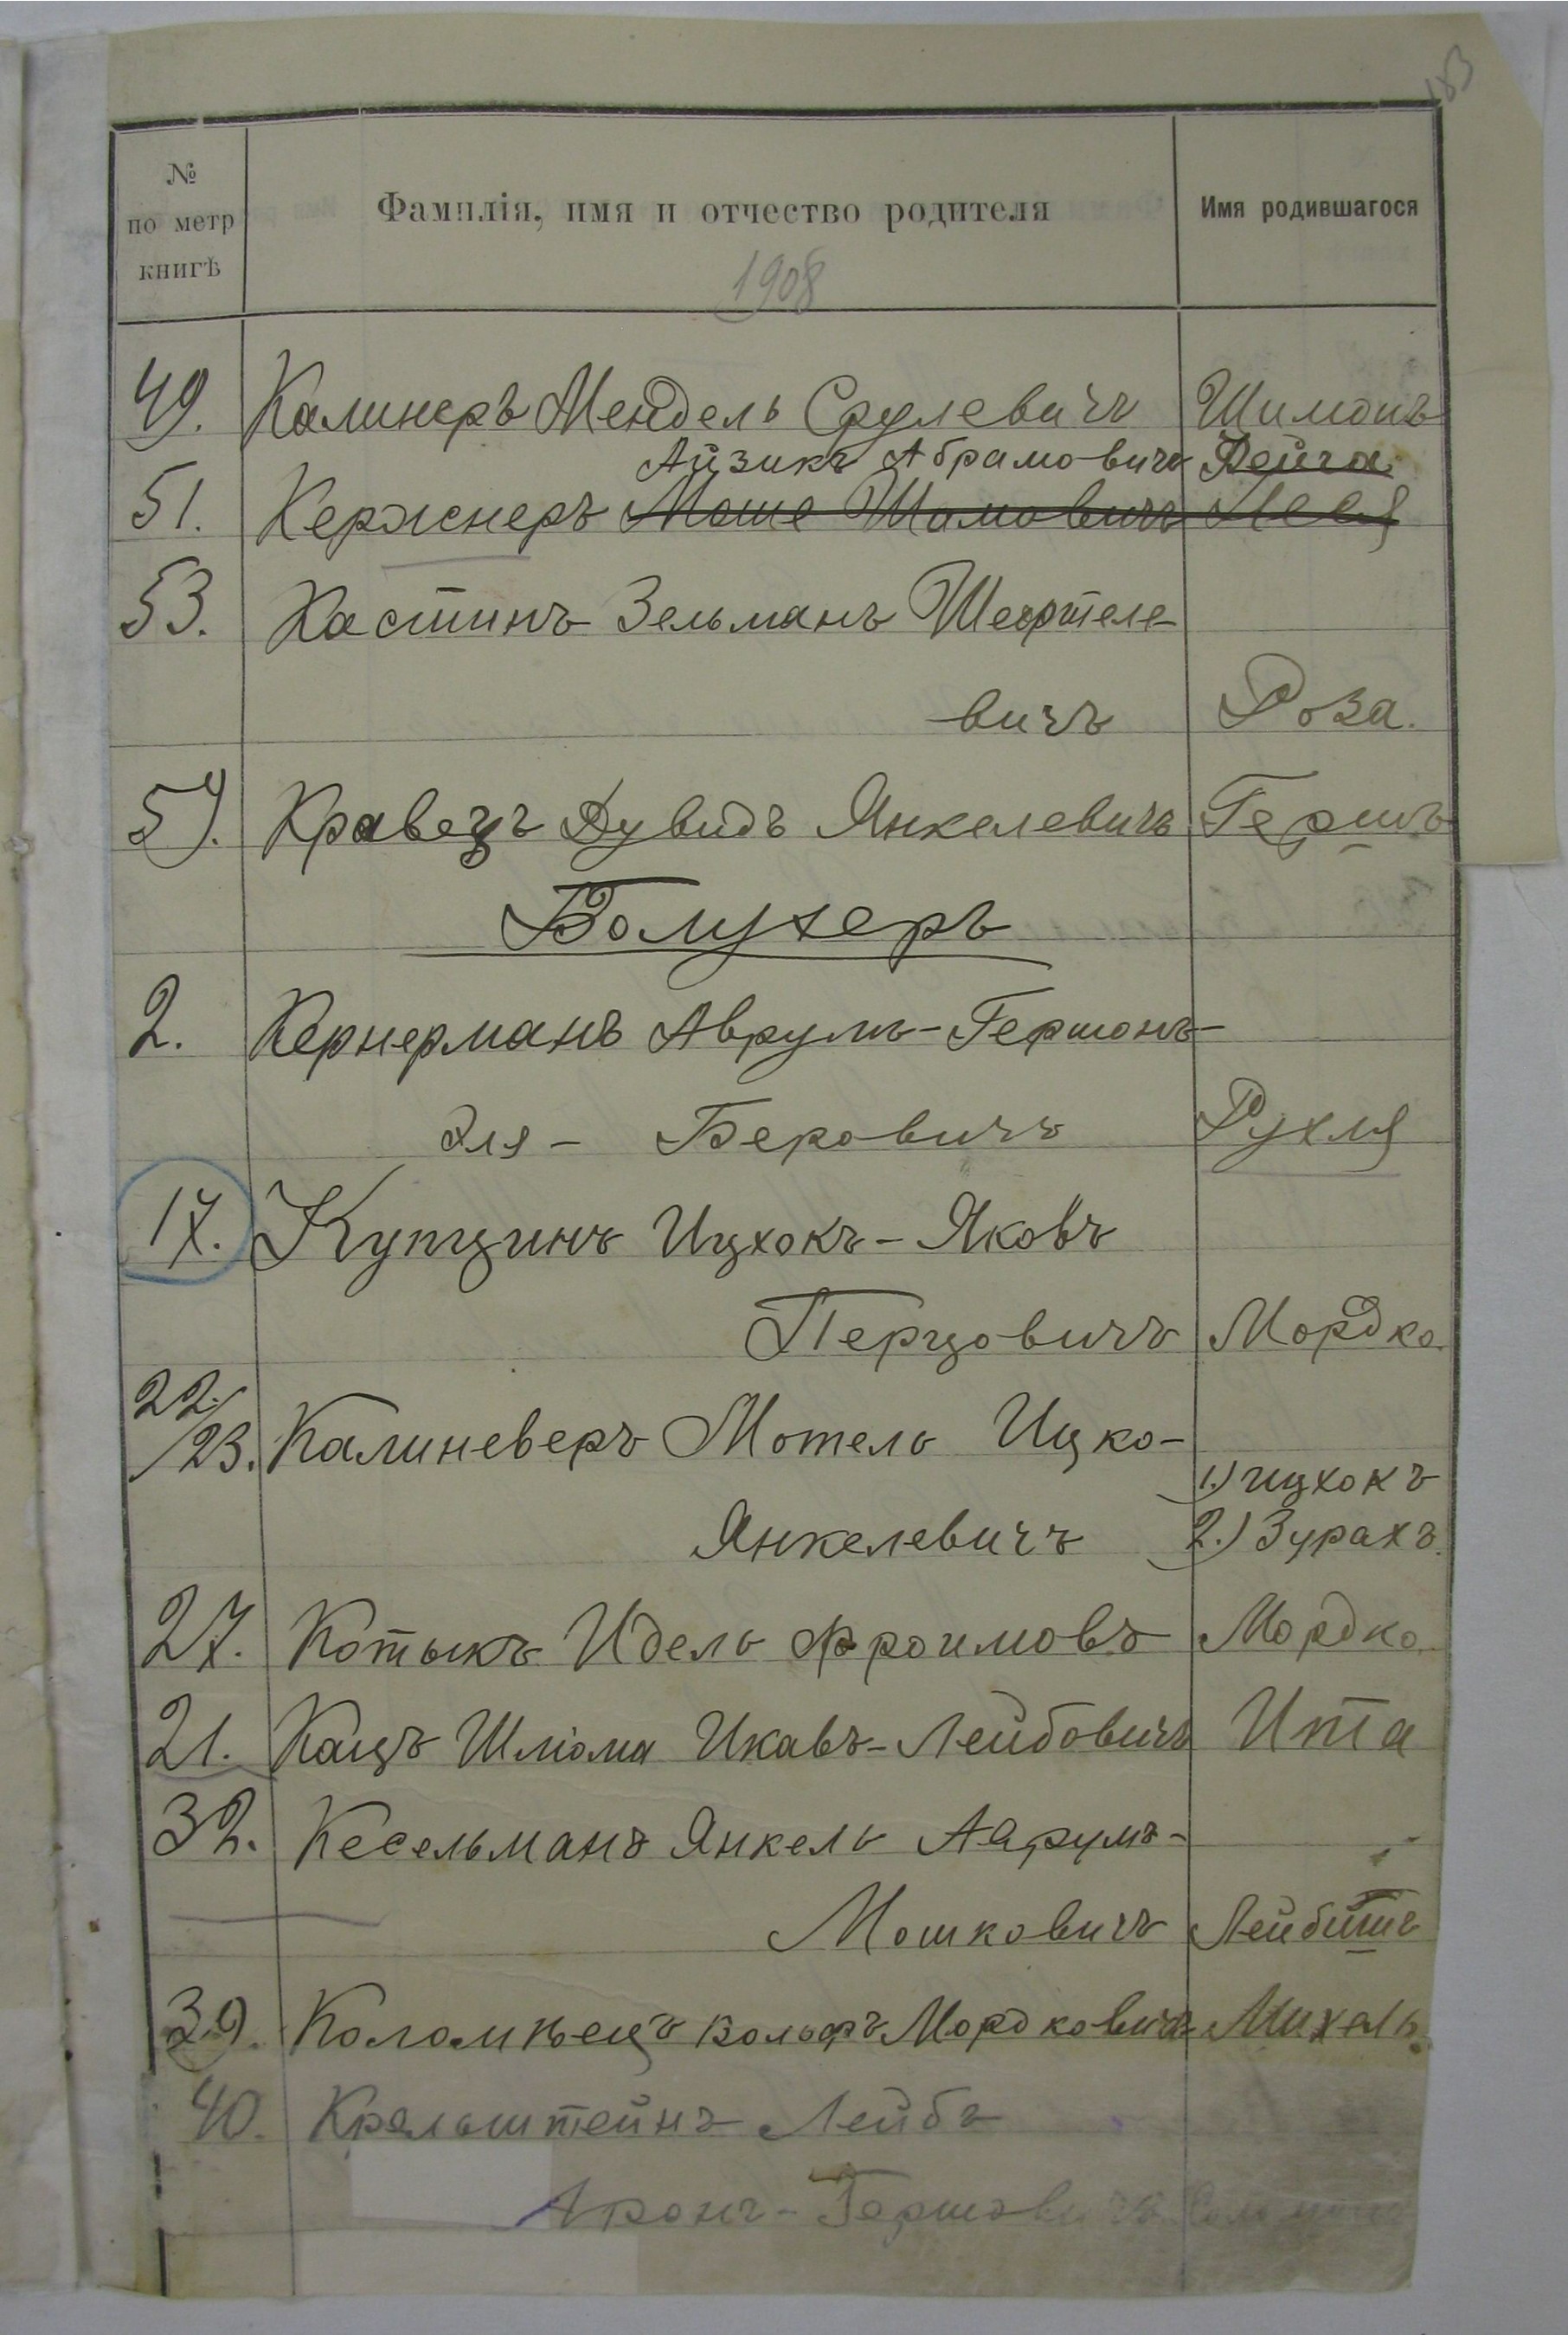 183
№
по метр
книгѣ
Фамилія, имя и отчество родителя
Имя родившагося
1908
49. Калинеръ Мендель Срулевичъ Шимонъ
Айзикъ Абрамовичъ Фейга
51. Кержнеръ Моше Шамовичъ Лея
53. Кастинъ Зельманъ Шефтеле-
вичъ Роза.
54. Кравецъ Дувидъ Янкелевичъ Гершъ
Болухеръ
2. Кернерманъ Аврумъ-Гершонъ-
Эля- Беровичъ Рухля
17. Купчинъ Ицхокъ-Яковъ
Перцовичъ Мордко.
22/23. Калиневеръ Мотель Ицко-
1.) Ицхокъ
Янкелевичъ 2.) Зурахъ.
27. Котыкъ Идель Фроимовъ Мордко.
21. Кацъ Шлiома Икавъ-Лейбовичъ Ита
32. Кесельманъ Янкель Аврумъ-
Мошковичъ Лейбишъ
39. Коломѣецъ Вольфъ Мордковичъ Михель.
40. Крельштейнъ Лейбъ
Аронъ-Гершовичъ